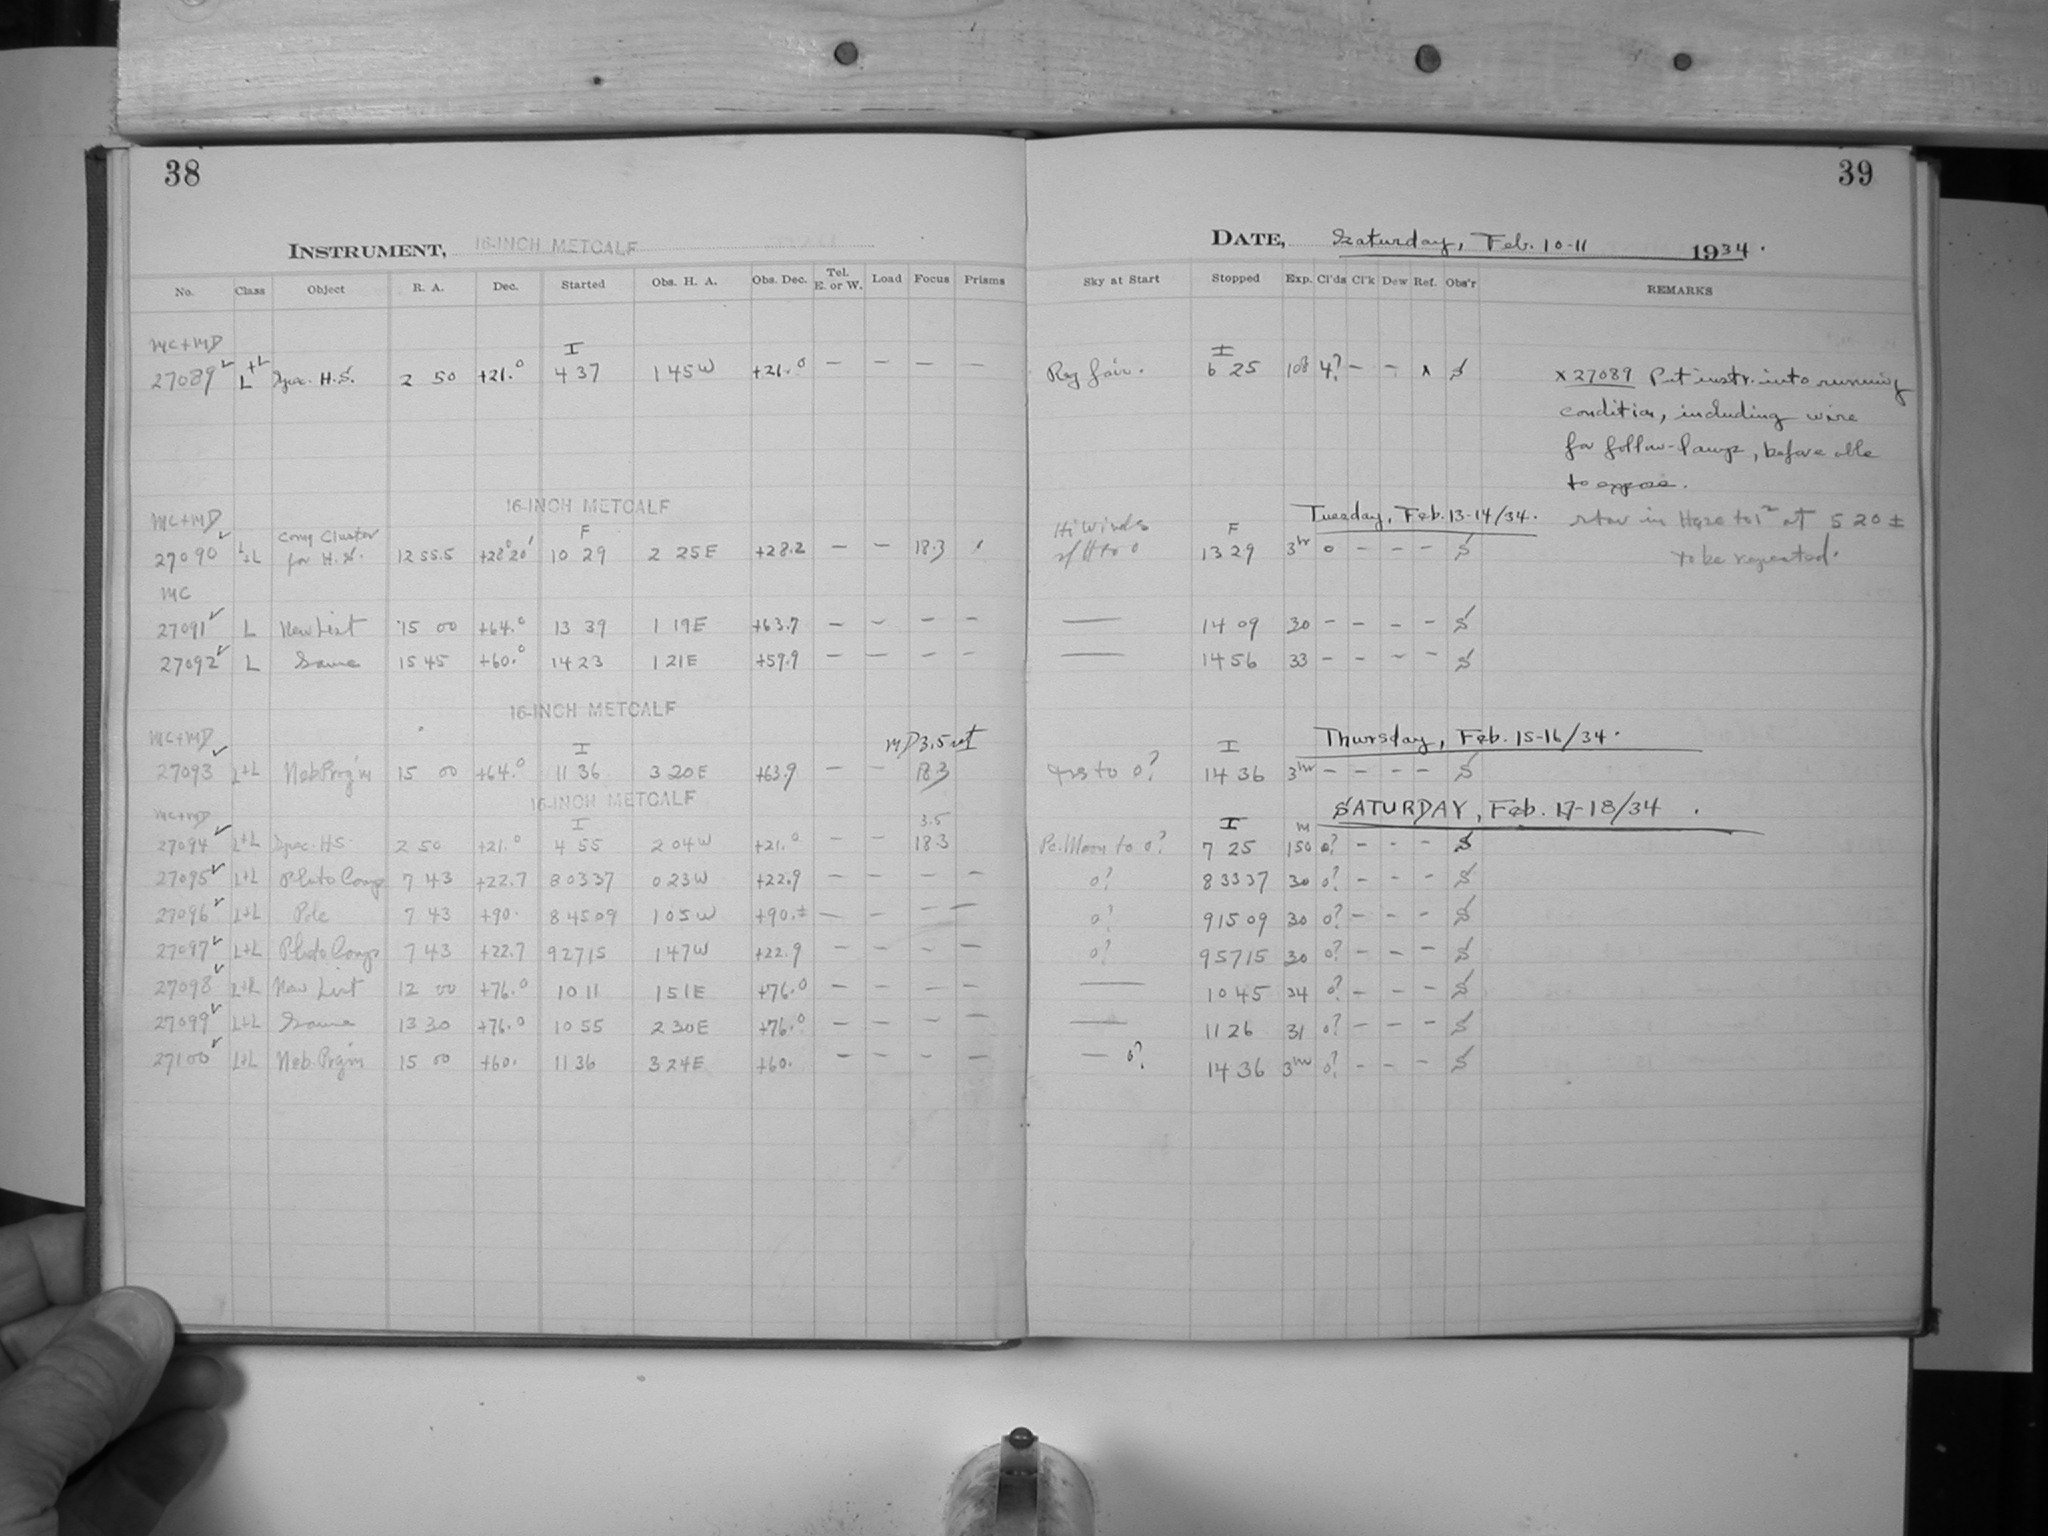 38
INSTRUMENT, 16-INCH METCALF
No. Class Object R. A. Dec. Started Obs. H. A. Obs. Dec. Tel. E. or W. Load Focus Prisms
MC+MD I
27089 L+L H.S. 2 50 +21.0 4 37 1 45W +21.0 — — — —
16-INCH METCALF
MC+MD Cluster F
27090 L+L for H.S. 12 55.5 +28°20' 10 29 2 25E +28.2 — — 18.3
MC
27091 L New List 15 00 +64.0 13 39 1 19E +63.7 — — — —
27092 L Same 15 45 +60.0 14 23 1 21E +59.9 — — — —
16-INCH METCALF
MC+MD I MD 3.5
27093 L+L Neb. Prg'm 15 00 +64.0 11 36 3 20E +63.9 — — 18.3
16-INCH METCALF
MC+MD I 3.5
27094 L+L HS 2 50 +21.0 4 55 2 04W +21.0 — — 18.3
27095 L+L Pluto Comp 7 43 +22.7 8 03 37 0 23W +22.9 — — — —
27096 L+L Pole 7 43 +90. 8 45 09 1 05W +90.± — — — —
27097 L+L Pluto Comp 7 43 +22.7 9 27 15 1 47W +22.9 — — — —
27098 L+L New List 12 00 +76.0 10 11 1 51E +76.0 — — — —
27099 L+L Same 13 30 +76.0 10 55 2 30E +76.0 — — — —
27100 L+L Neb. Prg'm 15 00 +60. 11 36 3 24E +60. — — — —
39
DATE, Saturday, Feb. 10-11 1934.
Sky at Start Stopped Exp. Cl'ds Cl'k Dew Ref. Obs'r REMARKS
I
fair. 6 25 108 4? — — x S
x 27089 Put instr. into running
condition, including wire
for follow-lamp, before able
to expose.
Tuesday, Feb. 13-14/34.
Hi Winds F
13 29 3hr 0 — — — S
in Haze to at 5 20 ±
to be repeated.
— 14 09 30 — — — — S
— 14 56 33 — — — — S
Thursday, Feb. 15-16/34.
I
to 0? 14 36 3hr — — — — S
SATURDAY, Feb. 17-18/34.
I m
Moon to 0? 7 25 150 0? — — — S
0? 8 33 37 30 0? — — — S
0? 9 15 09 30 0? — — — S
0? 9 57 15 30 0? — — — S
— 10 45 34 0? — — — S
— 11 26 31 0? — — — S
— 0? 14 36 3hr 0? — — — S